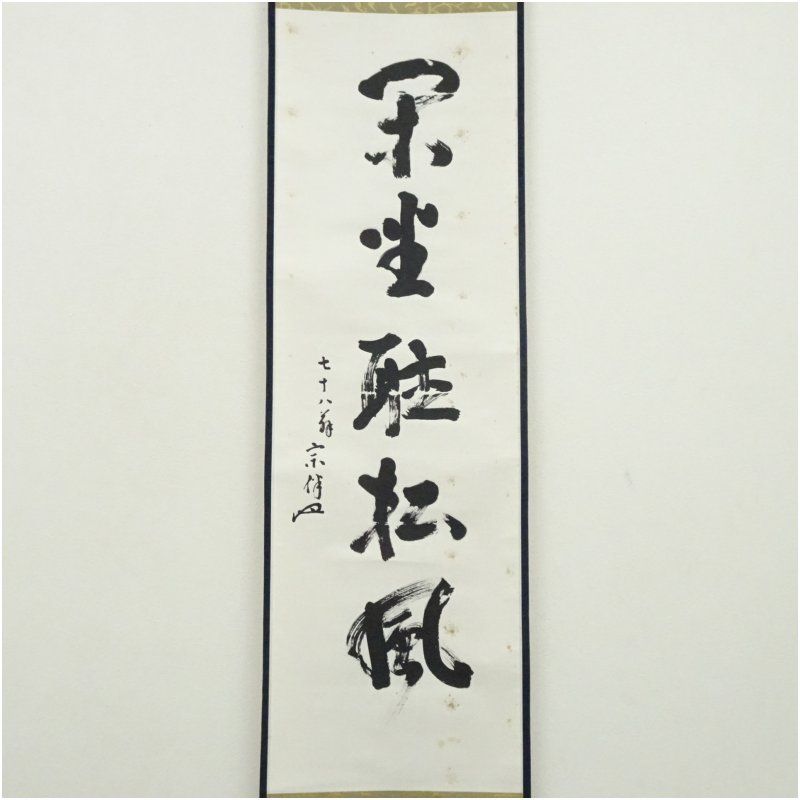 閑坐聴松風
七十八翁宗